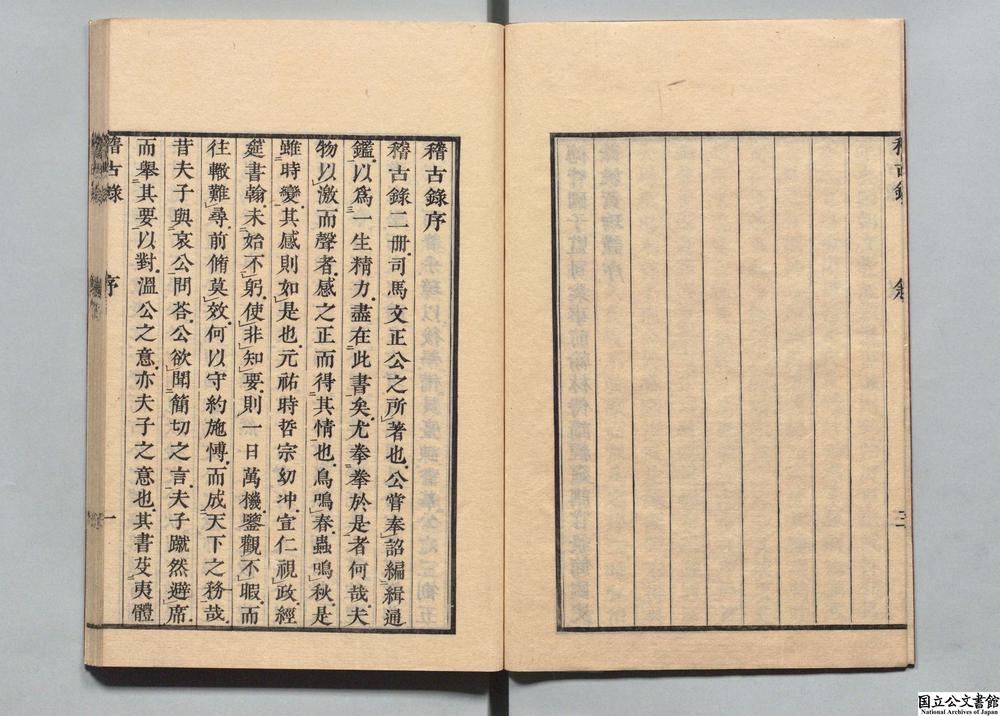 稽古錄
叙
三
稽古錄序
稽古錄二冊司馮文正公之所著也公嘗奉詔編緝通
鑑以爲一生精力盡在此書矣尤拳拳於是者何哉夫
物以激而聲者感之正而得其情也鳥鳴春蟲鳴秋是
雖時變其感則如是也元祐時哲宗幼冲宣仁視政經
筵書翰未始不躬使非知要則一日萬機鑒觀不暇而
往轍難尋前脩莫效何以守約施博而成天下之務哉
昔夫子與哀公問荅公欲聞簡切之言夫子蹴然避席
而舉其要以對溫公之意亦夫子之意也其書芟夷體
稽古錄
序
一
国立公文書館
National Archives of Japan